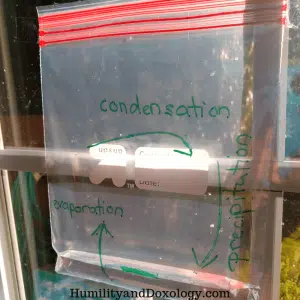 condensation
evaporation
precipitation
HumilityandDoxology.com